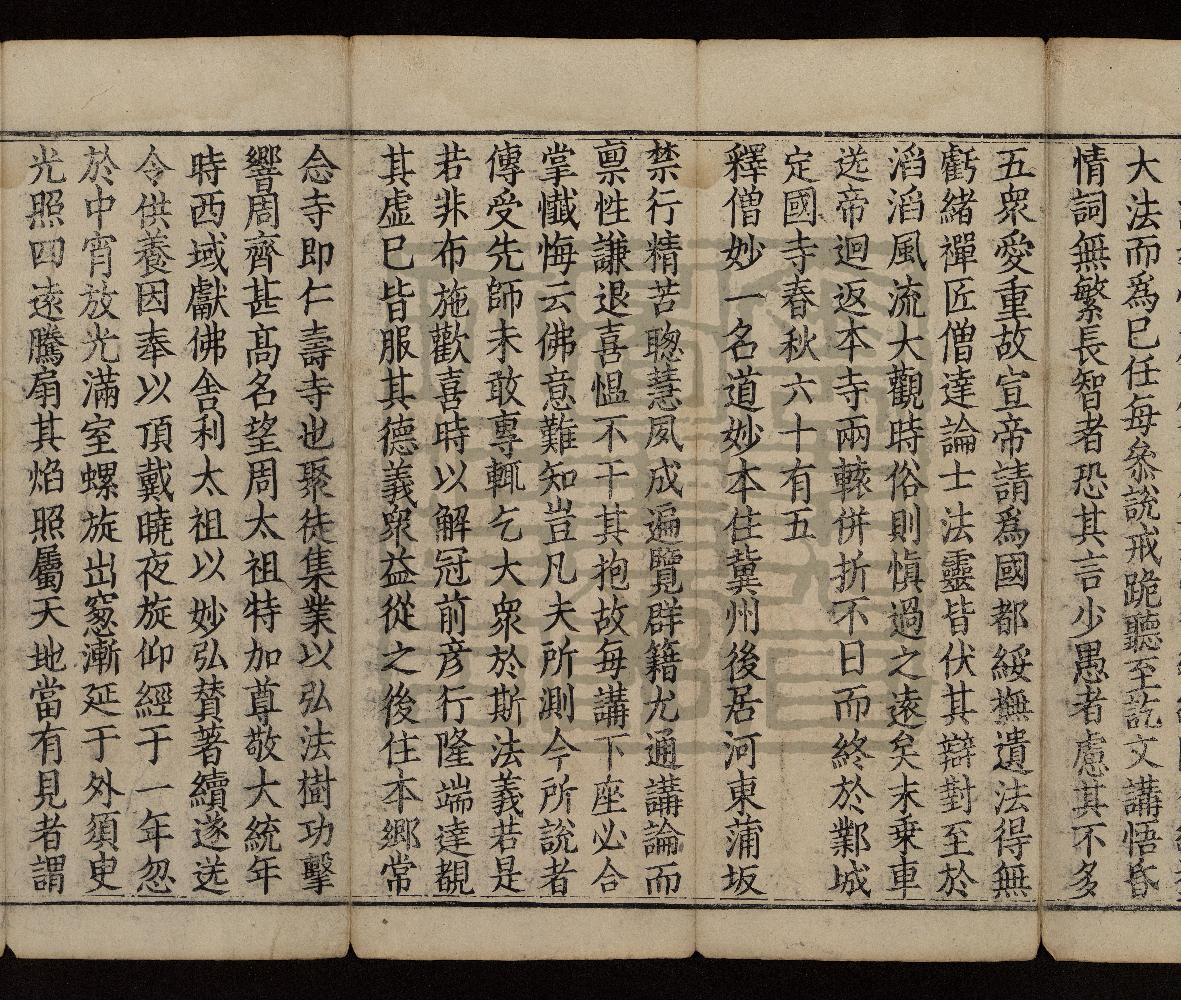 大法而爲己任每叅說戒跪聽至訖文講悟昏
情詞無繁長智者恐其言少愚者慮其不多
五衆愛重故宣帝請爲國都綏撫遺法得無
虧緒禪匠僧達論士法靈皆伏其辯對至於
滔滔風流大觀時俗則慎過之遠矣末乗車
送帝迴返本寺兩轅併折不日而終於鄴城
定國寺春秋六十有五
釋僧妙一名道妙本住冀州後居河東蒲坂
禁行精苦聦慧夙成遍覽群籍尤通講論而
禀性謙退喜愠不干其抱故每講下座必合
掌懺悔云佛意難知豈凡夫所測今所說者
傳受先師未敢專輒乞大衆於斯法義若是
若非布施歡喜時以解冠前彦行隆端達覩
其虛己皆服其德義衆益從之後住本鄉常
念寺即仁壽寺也聚徒集業以弘法樹功擊
響周齊甚髙名望周太祖特加尊敬大統年
時西域獻佛舍利太祖以妙弘賛著續遂送
令供養因奉以頂戴曉夜旋仰經于一年忽
於中宵放光滿室螺旋出窓漸延于外須臾
光照四遠騰扇其焰照屬天地當有見者謂